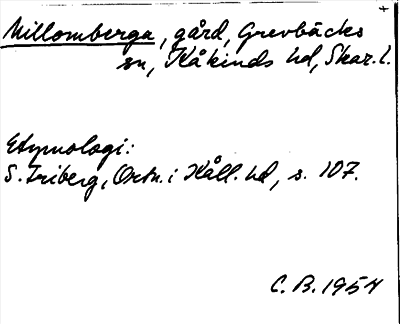 Millomberga, gård, Grevbäcks
sn, Kåkinds hd, Skar. l.
Etymologi:
S. Friberg, Ortn. i Kåll. hd, s. 107.
C. B. 1954